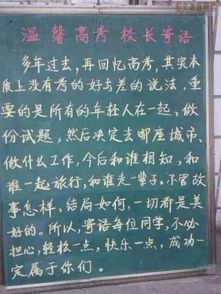 温馨高考 校长寄语
多年过去,再回忆高考,其实本
质上没有考的好与差的说法,重
要的是所有的年轻人在一起,做一
份试题,然后决定去哪座城市、
做什么工作,今后和谁相知,和
谁一起旅行,和谁走一辈子。不管故
事怎样,结局如何,一切都是美
好的。所以,寄语每位同学,不必
担心,轻松一点,快乐一点,成功一
定属于你们。